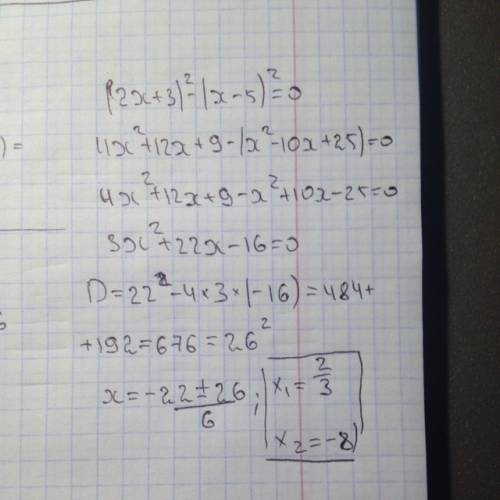 (2x+3)²-(x-5)²=0
) =
4x²+12x+9-(x²-10x+25)=0
4x²+12x+9-x²+10x-25=0
3x²+22x-16=0
D=22²-4×3×(-16)=484+
+192=676=26²
x=-22±26/6; x₁=2/3
x₂=-8